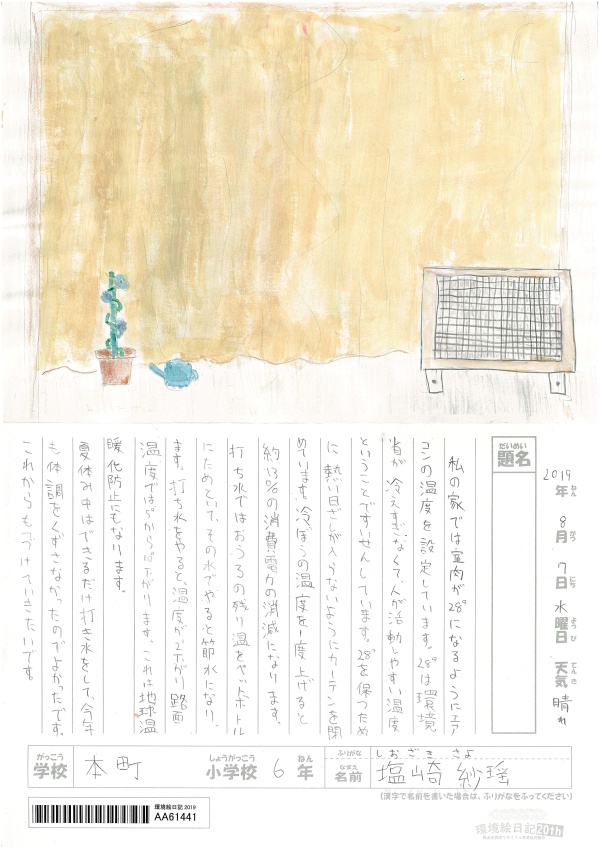 2019年 8月 7日 水曜日 天気 晴れ
ねん がつ にち ようび てんき
だいめい
題名
私の家では室内が28°になるようにエア
コンの温度を設定しています。28°は環境
省が冷えすぎなくて、人が活動しやすい温度
ということですいせんしています。28°を保つため
に熱い日ざしが入らないようにカーテンを閉
めています。冷ぼうの温度を1度上げると
約13%の消費電力の消減になります。
打ち水ではおふろの残り温をペットボトル
にためといて、その水でやると節水になり
ます。打ち水をやると、温度が2°下がり路面
温度では5°から10°下がります。これは地球温
暖化防止にもなります。
夏休み中はできるだけ打き水をして、今年
も体調をくずさなかったのでよかったです。
これからもつづけていきたいです。
がっこう
学校 本町
しょうがっこう
小学校 6年
ねん
ふりがな しおざき さよ
なまえ
名前 塩崎 紗瑶
(漢字で名前を書いた場合は、ふりがなをふってください)
環境絵日記 2019
AA61441
環境絵日記20th